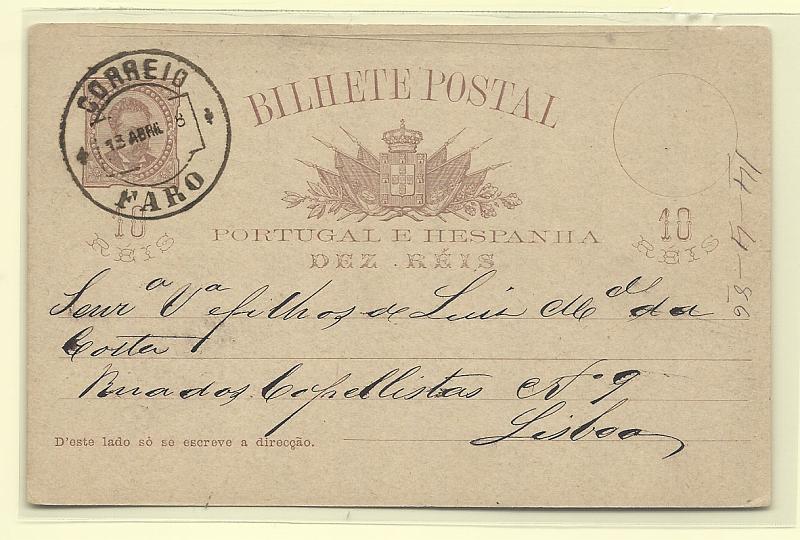 CORREIO
13 ABRIL 8
FARO
BILHETE POSTAL
10 RÉIS
10 RÉIS
PORTUGAL E HESPANHA
DEZ RÉIS
Senrª Vª e filhos de Luis Mel da
Costa
Rua dos Capellistas Nº 9
Lisboa
D'este lado só se escreve a direcção.
14-4-86